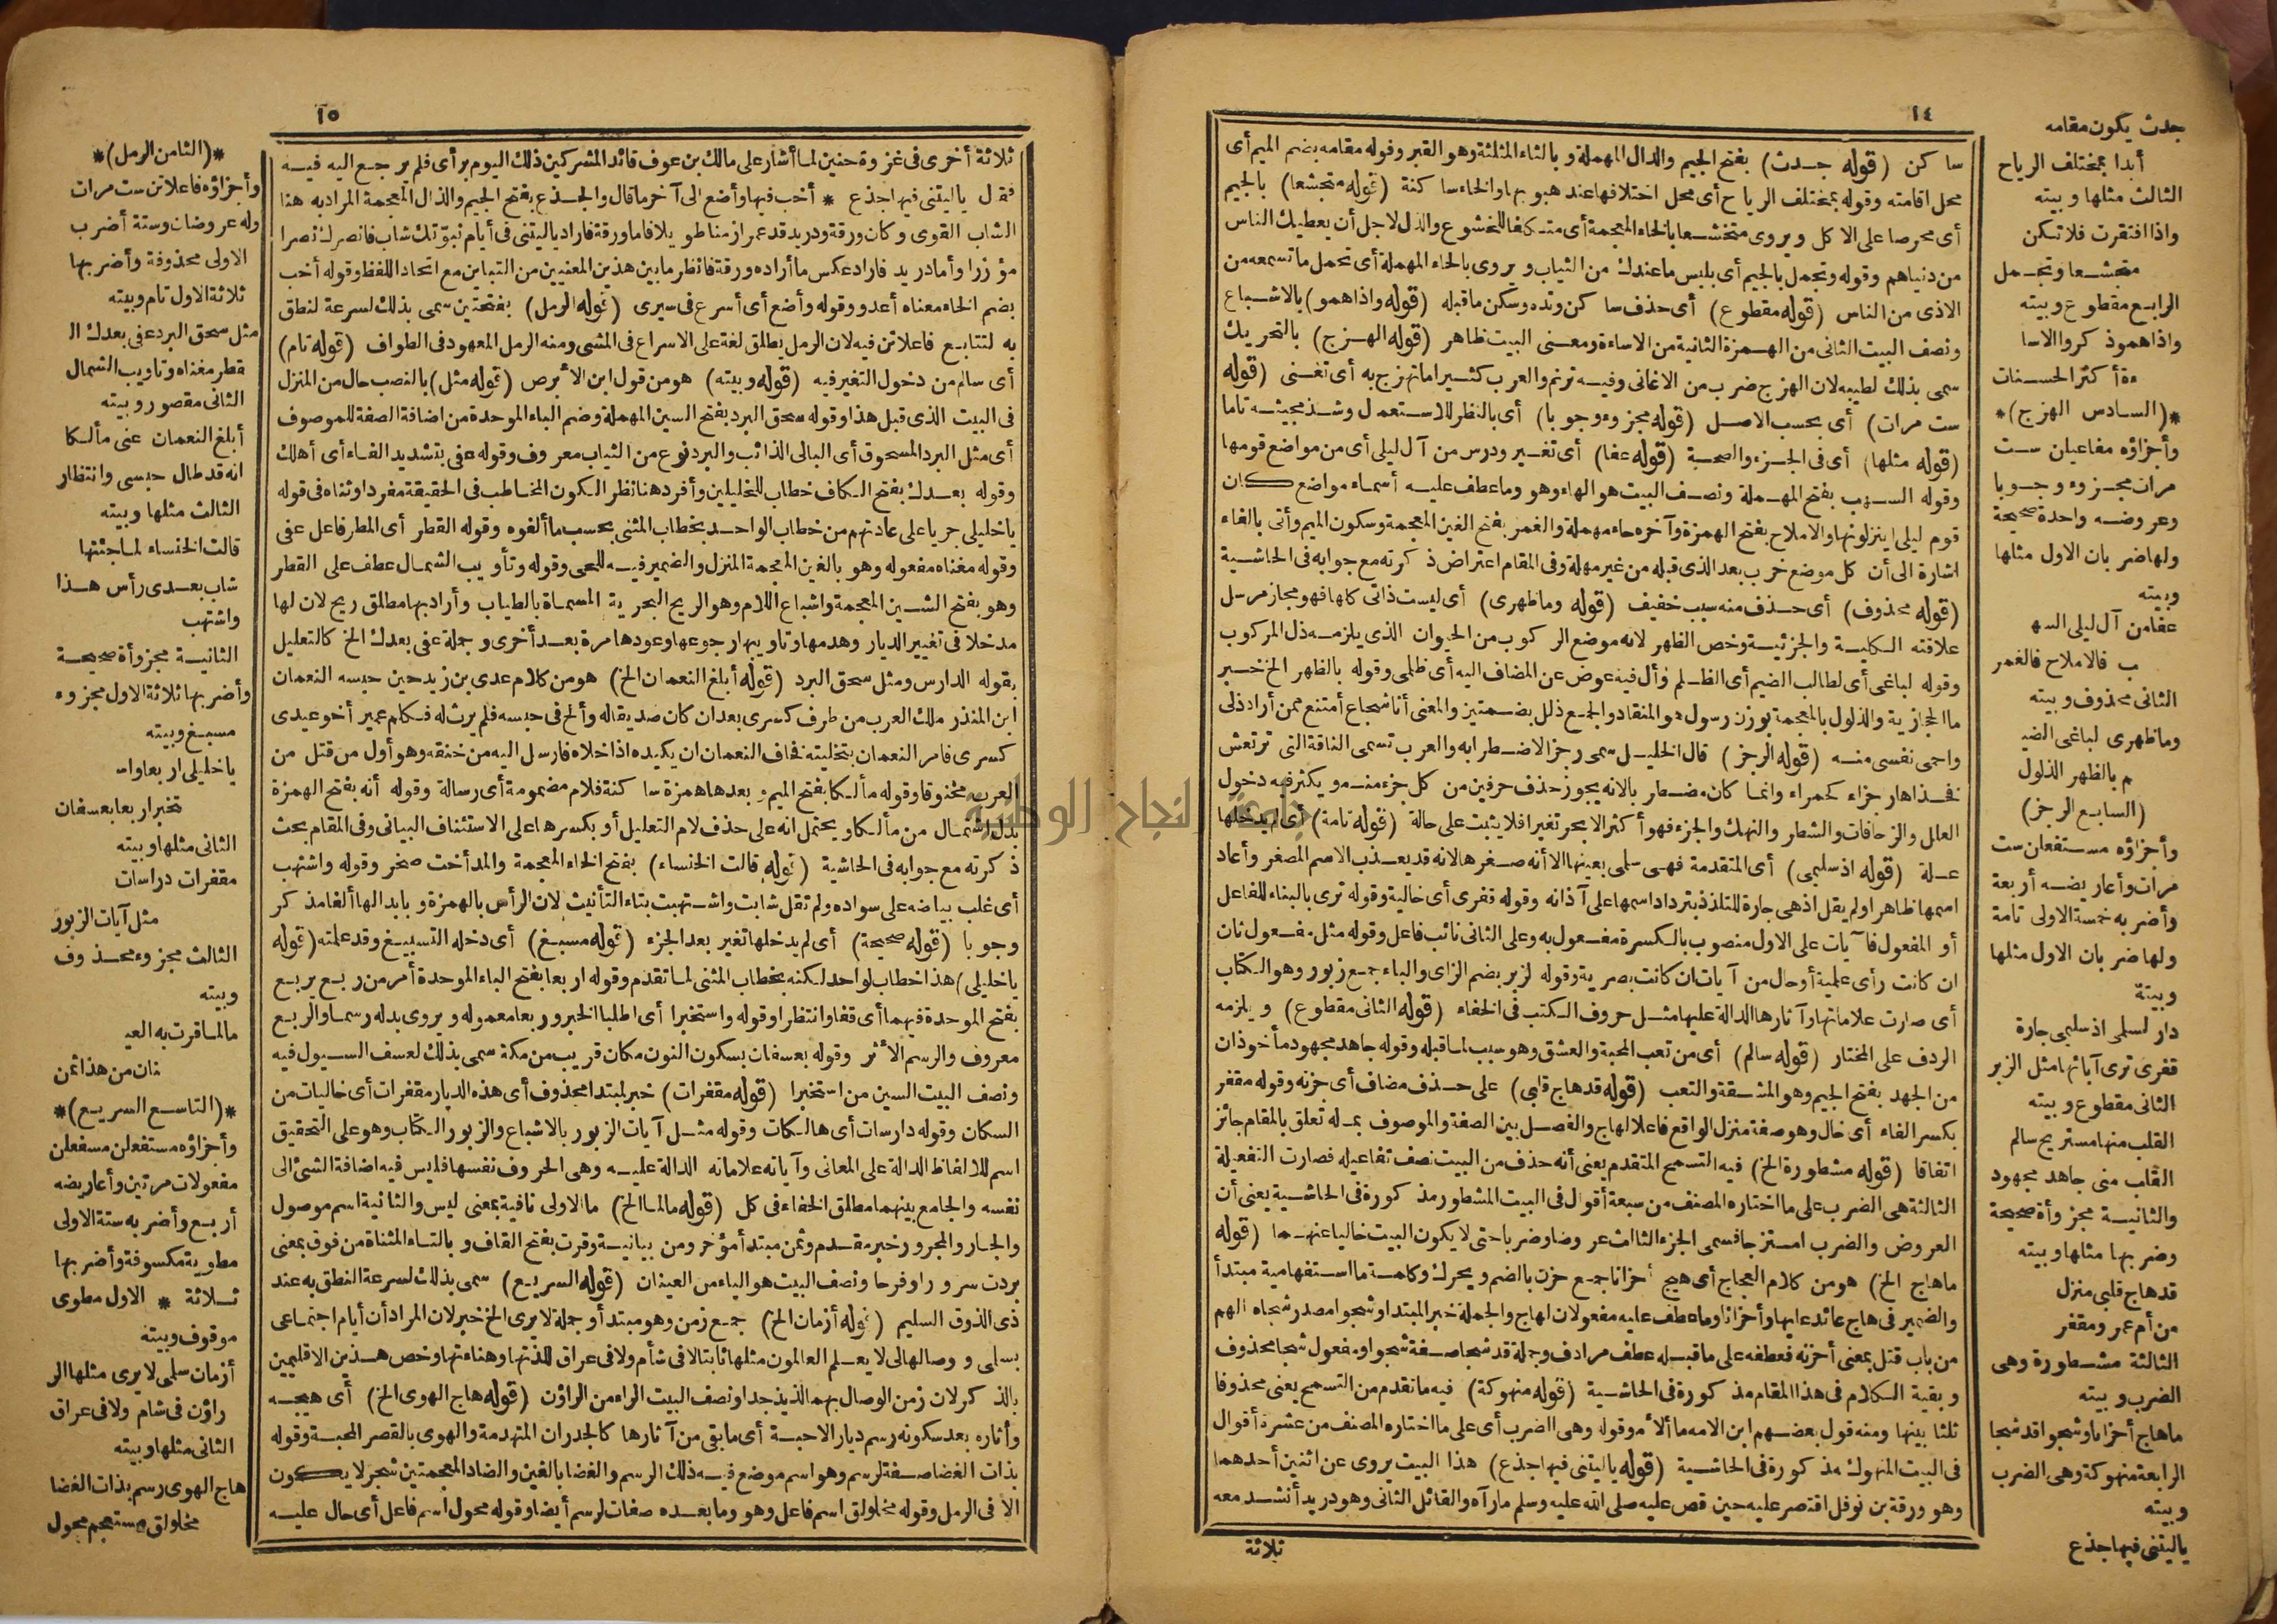 ١٤
جدث يكون مقامه
أبدا بمختلف الرياح
الثالث مثلها وبيته
واذا افتقرت فلا تكن
متجشعا وتجمل
الرابع مقطوع وبيته
واذا همو ذكروا الاسا
ءة أكثر الحسنات
*(السادس الهزج)*
وأجزاؤه مفاعيلن ست
مرات مجزوء وجوبا
وعروضه واحدة صحيحة
ولها ضربان الاول مثلها
وبيته
عفا من آل ليلى السه
ب فالاملاح فالغمر
الثاني محذوف وبيته
وما ظهرى لباغى الضيـ
م بالظهر الذلول
(السابع الرجز)
وأجزاؤه مستفعلن ست
مرات وأعاريضه أربعة
وأضربه خمسة الاولى تامة
ولها ضربان الاول مثلها
وبيته
دار لسلمى اذ سليمى جارة
قفرى ترى آياتها مثل الزبر
الثاني مقطوع وبيته
القلب منها مستريح سالم
القلب منى جاهد مجهود
والثانية مجزوأة صحيحة
وضربها مثلها وبيته
قد هاج قلبى منزل
من أم عمرو مقفر
الثالثة مشطورة وهى
الضرب وبيته
ما هاج أحزانا وشجوا قد شجا
الرابعة منهوكة وهى الضرب
وبيته
ياليتنى فيها جذع
ساكن (قوله جدث) بفتح الجيم والدال المهملة وبالثاء المثلثة وهو القبر وقوله مقامه بضم الميم أى
محل اقامته وقوله بمختلف الرياح أى محل اختلافها عند هبوبها والخاء ساكنة (قوله متجشعا) بالجيم
أى محرصا على الاكل ويروى متخشعا بالخاء المعجمة أى متكلفا للخشوع والذل لاجل أن يعطيك الناس
من دنياهم وقوله وتجمل بالجيم أى بلبس ما عندك من الثياب ويروى بالحاء المهملة أى تحمل ما تسمعه من
الاذى من الناس (قوله مقطوع) أى حذف ساكن وتده وسكن ما قبله (قوله واذا همو) بالاشباع
ونصف البيت الثانى من الهمزة الثانية من الاساءة ومعنى البيت ظاهر (قوله الهزج) بالتحريك
سمى بذلك لطيبه لان الهزج ضرب من الاغانى وفيه ترنم والعرب كثيرا ما تهزج به أى تغنى (قوله
ست مرات) أى بحسب الاصل (قوله مجزوء وجوبا) أى بالنظر للاستعمال وشذ مجيئه تاما
(قوله مثلها) أى فى الجزء والصحة (قوله عفا) أى تغير ودرس من آل ليلى أى من مواضع قومها
وقوله السهب بفتح المهملة ونصف البيت هو الهاء وهو وما عطف عليه أسماء مواضع كان
قوم ليلى ينزلونها والاملاح بفتح الهمزة وآخره حاء مهملة والغمر بفتح الغين المعجمة وسكون الميم وأتى بالفاء
اشارة الى أن كل موضع خرب بعد الذى قبله من غير مهلة وفى المقام اعتراض ذكرته مع جوابه فى الحاشية
(قوله محذوف) أى حذف منه سبب خفيف (قوله وما ظهرى) أى ليست ذاتى كلها فهو مجاز مرسل
علاقته الكلية والجزئية وخص الظهر لانه موضع الركوب من الحيوان الذى يلزمه ذل المركوب
وقوله لباغى أى لطالب الضيم أى الظلم فأل فيه عوض عن المضاف اليه أى ظلمى وقوله بالظهر الخ خبر
ما الحجازية والذلول بالمعجمة بوزن رسول هو المنقاد والجمع ذلل بضمتين والمعنى أنا شجاع أمتنع ممن أراد ذلى
واحمى نفسى منه (قوله الرجز) قال الخليل سمى رجزا لاضطرابه والعرب تسمى الناقة التى ترتعش
فخذاها رجزاء كحمراء وانما كان مضطربا لانه يجوز حذف حرفين من كل جزء منه ويكثر فيه دخول
العلل والزحافات والشطر والنهك والجزء فهو أكثر الابحر تغيرا فلا يثبت على حالة (قوله تامة) أى لم يدخلها
علة (قوله اذ سليمى) أى المتقدمة فهى سلمى بعينها الا أنه صغرها لانه قد يعذب الاسم المصغر وأعاد
اسمها ظاهرا ولم يقل اذ هى جارة للتلذذ بترداد اسمها على آذانه وقوله قفرى أى خالية وقوله ترى بالبناء للفاعل
أو المفعول فآيات على الاول منصوب بالكسرة مفعول به وعلى الثانى نائب فاعل وقوله مثل مفعول ثان
ان كانت رأى علمية أو حال من آيات ان كانت بصرية وقوله لزبر بضم الزاى والباء جمع زبور وهو الكتاب
أى صارت علاماتها وآثارها الدالة عليها مثل حروف الكتب فى الخفاء (قوله الثانى مقطوع) ويلزمه
الردف على المختار (قوله سالم) أى من تعب المحبة والعشق وهو سبب لما قبله وقوله جاهد مجهود مأخوذان
من الجهد بفتح الجيم وهو المشقة والتعب (قوله قد هاج قلبى) على حذف مضاف أى حزنه وقوله مقفر
بكسر الفاء أى خال وهو صفة منزل الواقع فاعلا لهاج والفصل بين الصفة والموصوف بمـ له تعلق بالمقام جائز
اتفاقا (قوله مشطورة الخ) فيه التسمح المتقدم يعنى أنه حذف من البيت نصف تفاعيله فصارت التفعيلة
الثالثة هى الضرب على ما اختاره المصنف من سبعة أقوال فى البيت المشطور مذكورة فى الحاشية يعنى أن
العروض والضرب امتزجا فسمى الجزء الثالث عروضا وضربا حتى لا يكون البيت خاليا عنهما (قوله
ما هاج الخ) هو من كلام العجاج أى هيج أحزانا جمع حزن بالضم ويحرك وكلمة ما استفهامية مبتدأ
والضمير فى هاج عائد عليها وأحزانا وما عطف عليه مفعولان لهاج والجملة خبر المبتدا وشجوا مصدر شجاه الهم
من باب قتل بمعنى أحزنه فعطفه على ما قبله عطف مرادف وجملة قد شجا صفة شجوا ومفعول شجا محذوف
وبقية الكلام فى هذا المقام مذكورة فى الحاشية (قوله منهوكة) فيه ما تقدم من التسمح يعنى محذوفا
ثلثا بيتها ومنه قول بعضهم ابن الامه ما ألأمه وقوله وهى الضرب أى على ما اختاره المصنف من عشرة أقوال
فى البيت المنهوك مذكورة فى الحاشية (قوله ياليتنى فيها جذع) هذا البيت يروى عن اثنين أحدهما
وهو ورقة بن نوفل اقتصر عليه حين قص عليه صلى الله عليه وسلم ما رآه والقائل الثانى وهو دريد أنشد معه
ثلاثة
١٥
ثلاثة أخرى فى غزوة حنين لما أشار على مالك بن عوف قائد المشركين ذلك اليوم برأى فلم يرجع اليه فيه
فقال ياليتنى فيها جذع * أخب فيها وأضع الى آخر ما قال والجذع بفتح الجيم والذال المعجمة المراد به هنا
الشاب القوى وكان ورقة ودريد قد عمرا زمنا طويلا فاما ورقة فاراد ياليتنى فى أيام نبوتك شاب فانصرك نصرا
مؤزرا وأما دريد فاراد عكس ما أراده ورقة فانظر ما بين هذين المعنيين من التباين مع اتحاد اللفظ وقوله أخب
بضم الخاء معناه أعدو وقوله وأضع أى أسرع فى سيرى (قوله الرمل) بفتحتين سمى بذلك لسرعة لنطق
به لتتابع فاعلاتن فيه لان الرمل يطلق لغة على الاسراع فى المشى ومنه الرمل المعهود فى الطواف (قوله تام)
أى سالم من دخول التغير فيه (قوله وبيته) هو من قول ابن الأبرص (قوله مثل) بالنصب حال من المنزل
فى البيت الذى قبل هذا وقوله سحق البرد بفتح السين المهملة وضم الباء الموحدة من اضافة الصفة للموصوف
أى مثل البرد المسحوق أى البالى الذائب والبرد نوع من الثياب معروف وقوله عفى بتشديد الفاء أى أهلك
وقوله بعدك بفتح الكاف خطاب للخليلين وأفرد هنا نظر الكون المخاطب فى الحقيقة مفردا وثناه فى قوله
يا خليلى جريا على عادتهم من خطاب الواحد بخطاب المثنى بحسب ما ألفوه وقوله القطر أى المطر فاعل عفى
وقوله مغناه مفعوله وهو بالغين المعجمة المنزل والضمير فيه للحى وقوله وتأويب الشمال عطف على القطر
وهو بفتح الشين المعجمة واشباع اللام وهو الريح البحرية المسماة بالطياب وأراد بها مطلق ريح لان لها
مدخلا فى تغيير الديار وهدمها وتاويبها رجوعها وعودها مرة بعد أخرى وجملة عفى بعدك الخ كالتعليل
لقوله الدارس ومثل سحق البرد (قوله أبلغ النعمان الخ) هو من كلام عدى بن زيد حين حبسه النعمان
ابن المنذر ملك العرب من طرف كسرى بعد ان كان صديقا له وألح فى حبسه فلم يرث له فكلم عمير أخو عيدى
كسرى فامر النعمان بتخليته فخاف النعمان ان يكيده اذا خلاه فارسل اليه من خنقه وهو أول من قتل من
العرب مخنوقا وقوله مألكا بفتح الميم وبعدها همزة ساكنة فلام مضمومة أى رسالة وقوله أنه بفتح الهمزة
بدل اشتمال من مألكا ويحتمل انه على حذف لام التعليل أو بكسرها على الاستئناف البيانى وفى المقام بحث
ذكرته مع جوابه فى الحاشية (قوله قالت الخنساء) بفتح الخاء المعجمة والمد أخت صخر وقوله واشتهب
أى غلب بياضه على سواده ولم تقل شابت واشتهبت بتاء التأنيث لان الرأس بالهمزة وبابدالها ألفا مذكر
وجوبا (قوله صحيحة) أى لم يدخلها تغير بعد الجزء (قوله مسبغ) أى دخله التسبيغ وقد علمته (قوله
يا خليلى) هذا خطاب لواحد لكنه بخطاب المثنى لما تقدم وقوله اربعا بفتح الباء الموحدة أمر من ربع يربع
بفتح الموحدة فيهما أى قفا وانتظرا وقوله واستخبرا أى اطلبا الخبر وربعا معموله ويروى بدله رسما والربع
معروف والرسم الأثر وقوله بعسفان بسكون النون مكان قريب من مكة سمى بذلك لعسف السيول فيه
ونصف البيت السين من استخبرا (قوله مقفرات) خبر لمبتدا محذوف أى هذه الديار مقفرات أى خاليات من
السكان وقوله دارسات أى هالكات وقوله مثل آيات الزبور بالاشباع والزبور الكتاب وهو على التحقيق
اسم للالفاظ الدالة على المعانى وآياته علاماته الدالة عليه وهى الحروف نفسها فليس فيه اضافة الشئ الى
نفسه والجامع بينهما مطلق الخفاء فى كل (قوله مالما الخ) ما الاولى نافية بمعنى ليس والثانية اسم موصول
والجار والمجرور خبر مقدم وثمن مبتدأ مؤخر ومن بيانية وقرت بفتح القاف وبالتاء المثناة من فوق بمعنى
بردت سرورا وفرحا ونصف البيت هو الياء من العينان (قوله السريع) سمى بذلك لسرعة النطق به عند
ذى الذوق السليم (قوله أزمان الخ) جمع زمن وهو مبتدأ وجملة لا يرى الخ خبر لان المراد أن أيام اجتماعى
بسلمى ووصالها لى لا يعلم العالمون مثلها ثابتا لا فى شأم ولا فى عراق للذتها وهناءتها وخص هذين الاقليمين
بالذكر لان زمن الوصال بهما لذيذ جدا ونصف البيت الراء من الراؤن (قوله هاج الهوى الخ) أى هيجه
وأثاره بعد سكونه رسم ديار الاحبة أى ما بقى من آثارها كالجدران المتهدمة والهوى بالقصر المحبة وقوله
بذات الغضا صفة لرسم وهو اسم موضع فيه ذلك الرسم والغضا بالغين والضاد المعجمتين شجر لا يكون
الا فى الرمل وقوله مخلولق اسم فاعل وهو وما بعده صفات لرسم أيضا وقوله محول اسم فاعل أى حال عليه
*(الثامن الرمل)*
وأجزاؤه فاعلاتن ست مرات
وله عروضان وستة أضرب
الاولى محذوفة وأضربها
ثلاثة الاول تام وبيته
مثل سحق البرد عفى بعدك الـ
قطر مغناه وتاويب الشمال
الثانى مقصور وبيته
أبلغ النعمان عنى مألكا
انه قد طال حبسى وانتظار
الثالث مثلها وبيته
قالت الخنساء لما جئتها
شاب بعدى رأس هذا
واشتهب
الثانية مجزوأة صحيحة
وأضربها ثلاثة الاول مجزوء
مسبغ وبيته
يا خليلى اربعا واسـ
تخبرا ربعا بعسفان
الثانى مثلها وبيته
مقفرات دراسات
مثل آيات الزبور
الثالث مجزوء محذوف
وبيته
مالما قرت به العيـ
نان من هذا ثمن
*(التاسع السريع)*
وأجزاؤه مستفعلن مسفعلن
مفعولات مرتين وأعاريضه
أربع وأضربه ستة الاولى
مطوية مكسوفة وأضربها
ثلاثة * الاول مطوى
موقوف وبيته
أزمان سلمى لا يرى مثلها الر
راؤن فى شام ولا فى عراق
الثانى مثلها وبيته
هاج الهوى رسم بذات الغضا
مخلولق مستعجم محول
جامعة النجاح الوطنية